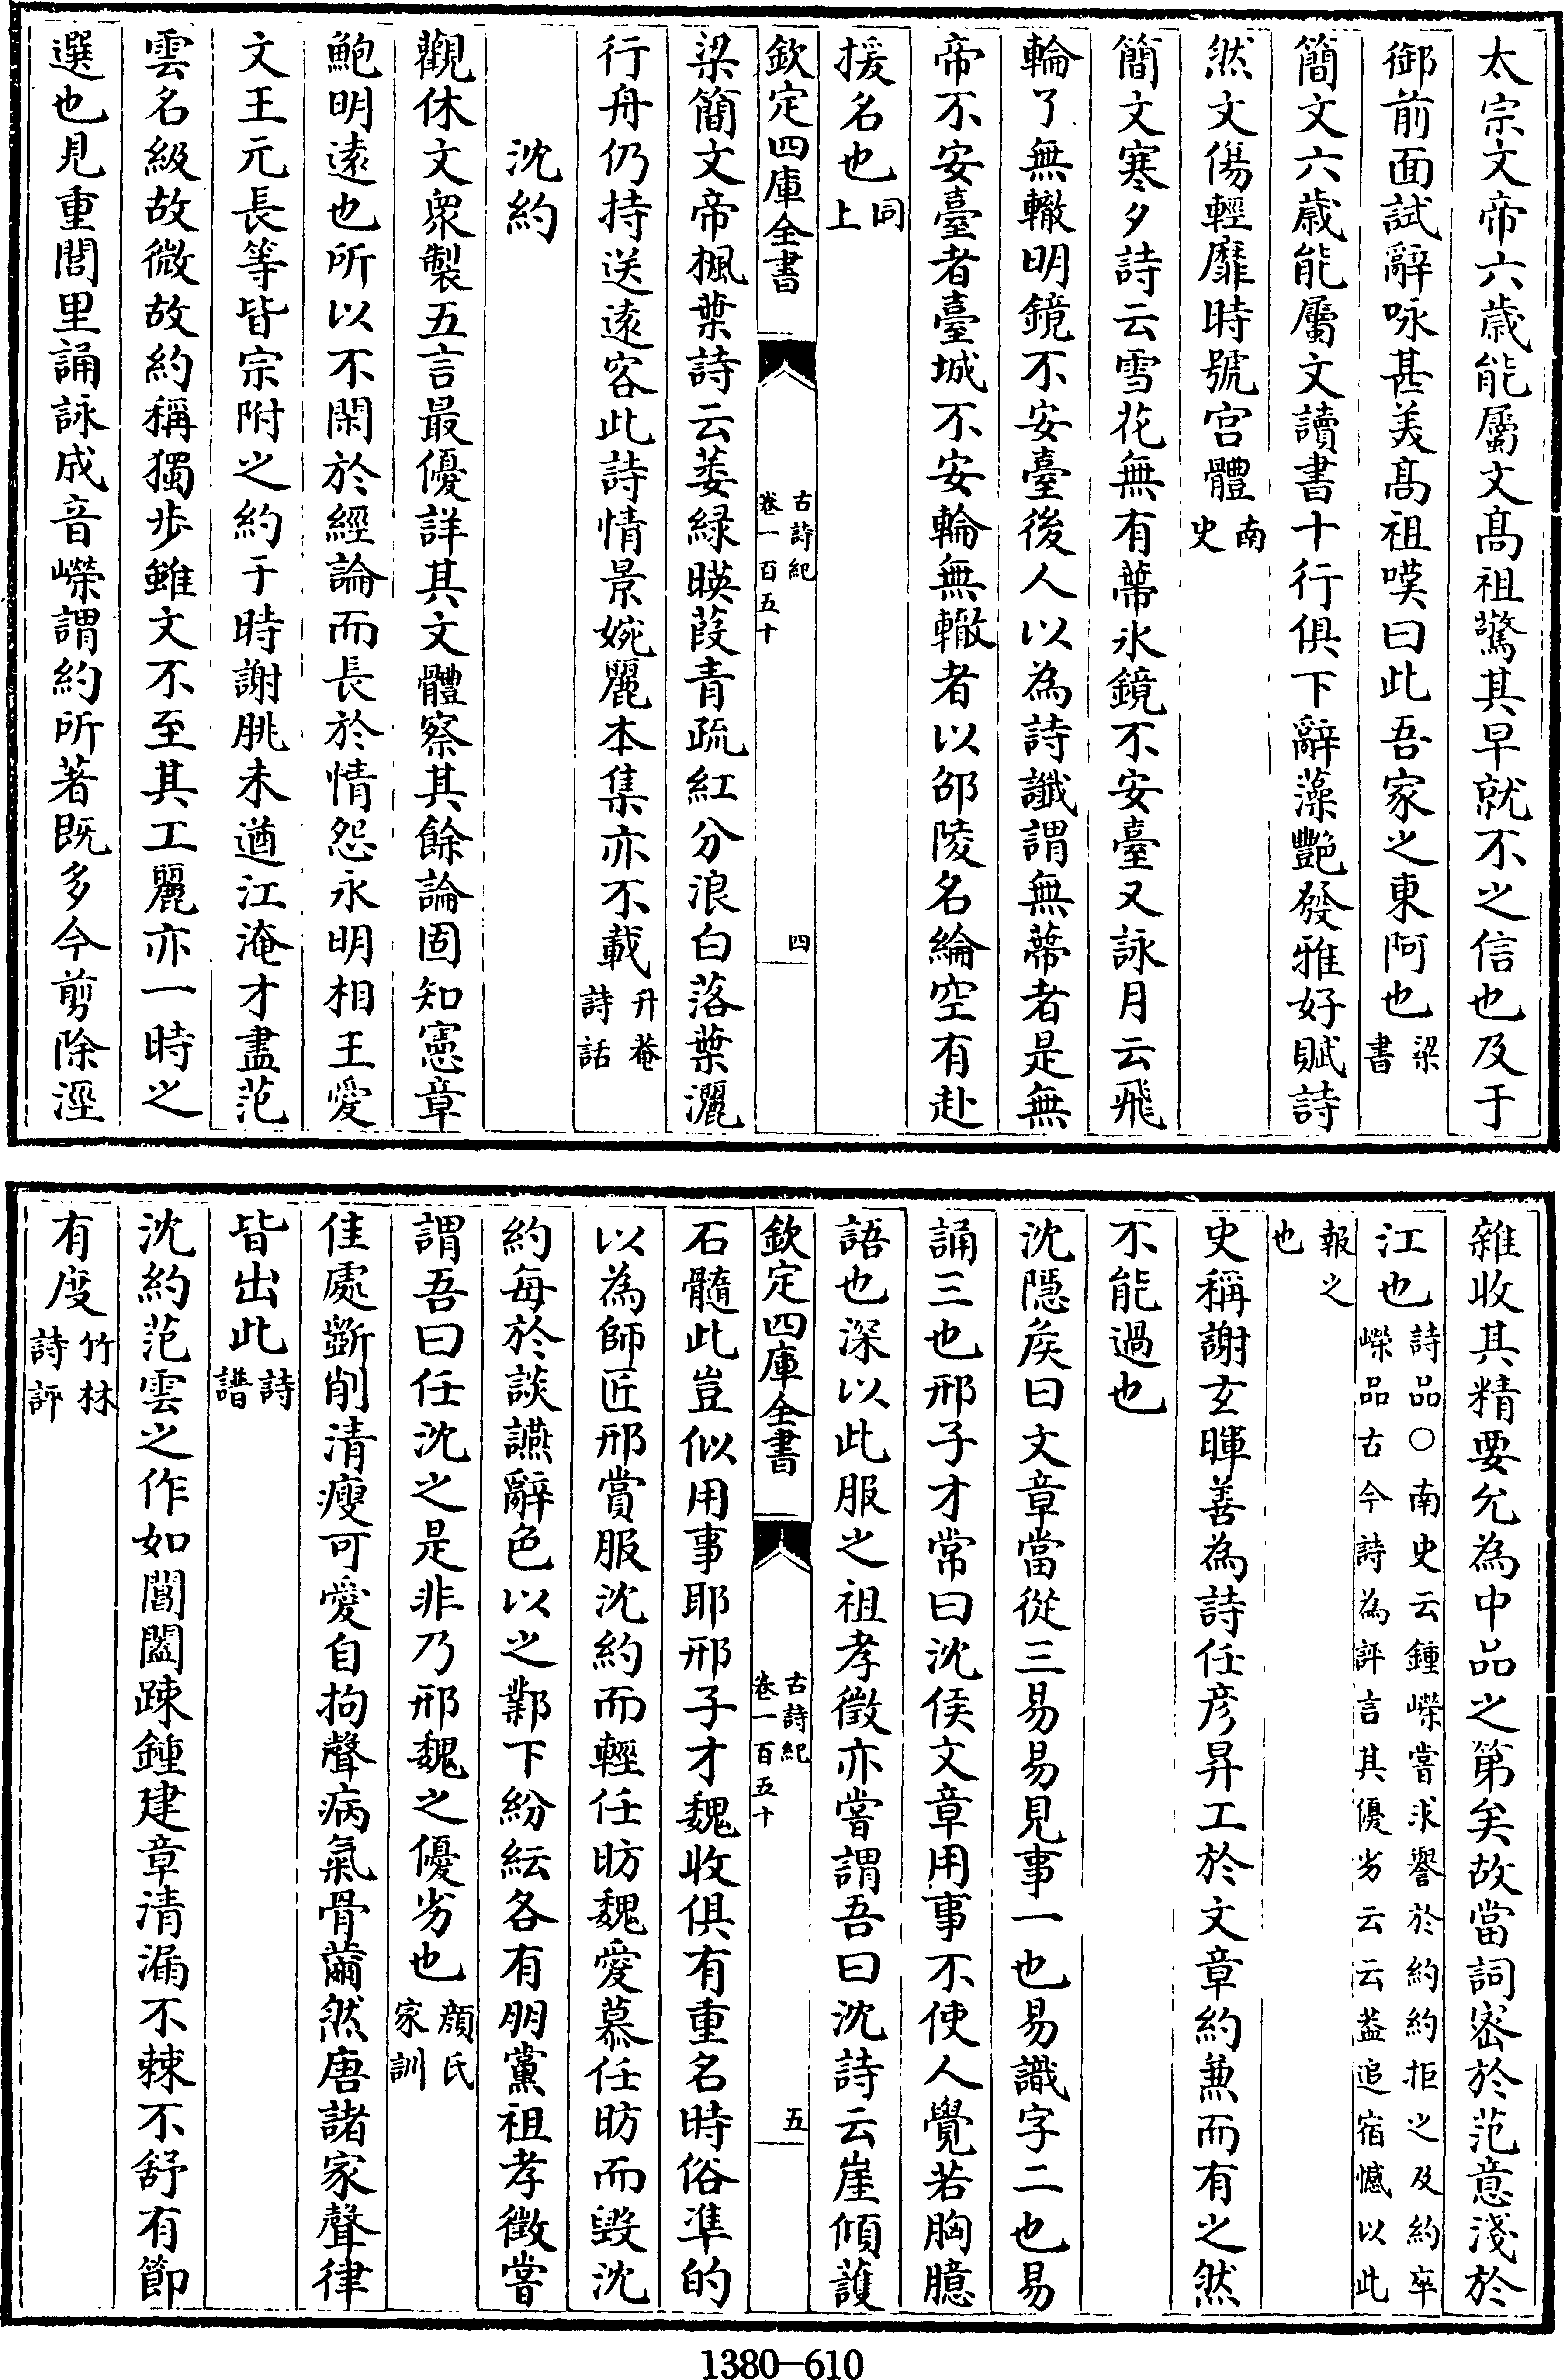 太宗文帝六歲能屬文髙祖驚其早就不之信也及于
御前面試辭咏甚美髙祖嘆曰此吾家之東阿也梁書
簡文六歲能屬文讀書十行俱下辭藻艷發雅好賦詩
然文傷輕靡時號宫體南史
簡文寒夕詩云雪花無有蔕氷鏡不安臺又詠月云飛
輪了無轍明鏡不安臺後人以為詩讖謂無蔕者是無
帝不安臺者臺城不安輪無轍者以邵陵名綸空有赴
援名也同上
欽定四庫全書 古詩紀 卷一百五十 四
梁簡文帝楓葉詩云萎緑暎葭青疏紅分浪白落葉灑
行舟仍持送逺客此詩情景婉麗本集亦不載升菴詩話
沈約
觀休文衆製五言最優詳其文體察其餘論固知憲章
鮑明逺也所以不閑於經論而長於情怨永明相王愛
文王元長等皆宗附之約于時謝朓未遒江淹才盡范
雲名級故微故約稱獨步雖文不至其工麗亦一時之
選也見重閭里誦詠成音嶸謂約所著既多今剪除淫
雜收其精要允為中品之第矣故當詞密於范意淺於
江也詩品○南史云鍾嶸嘗求譽於約約拒之及約卒嶸品古今詩為評言其優劣云云葢追宿憾以此
報之也
史稱謝玄暉善為詩任彦昇工於文章約兼而有之然
不能過也
沈隱矦曰文章當從三易易見事一也易識字二也易
誦三也邢子才常曰沈侯文章用事不使人覺若胸臆
語也深以此服之祖孝徵亦嘗謂吾曰沈詩云崖傾䕶
欽定四庫全書 古詩紀 卷一百五十 五
石髓此豈似用事耶邢子才魏收俱有重名時俗凖的
以為師匠邢賞服沈約而輕任昉魏愛慕任昉而毁沈
約每於談讌辭色以之鄴下紛紜各有朋黨祖孝徵嘗
謂吾曰任沈之是非乃邢魏之優劣也顔氏家訓
佳處斵削清瘦可愛自拘聲病氣骨薾然唐諸家聲律
皆出此詩譜
沈約范雲之作如閶闔踈鍾建章清漏不棘不舒有節
有度竹林詩評
1380-610